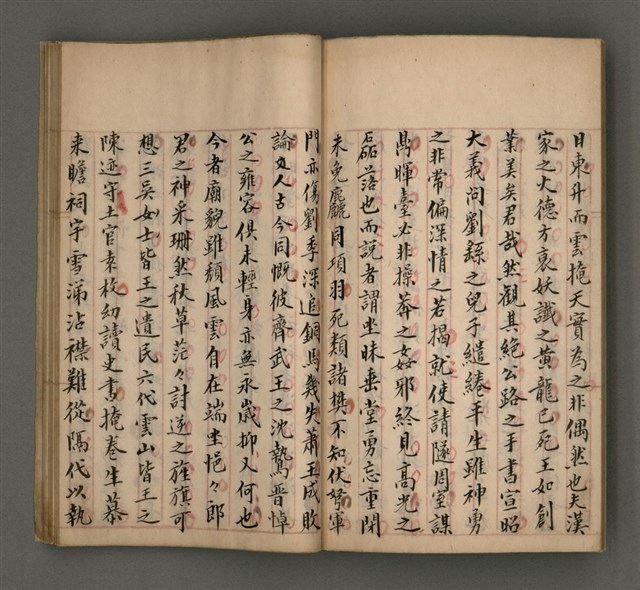 日東升而雲掩天實為之非偶然也夫漢
家之大德方衰妖讖之黃龍已死王如創
業美矣君哉然觀其絕公路之手書宣昭
大義問劉繇之兒子繾綣平生雖神勇
之非常偏深情之若揭就使請隧周室謀
鼎暉臺必非操莽之姦邪終見高光之
磊落也而說者謂坐昧垂堂勇忘重閉
未免麤同項羽死類諸樊不知伏弩軍
門亦傷劉季深追銅馬幾失蕭王成敗
論人古今同慨彼齊武王之沈鷙晉悼
公之雍容俱未輕身亦無永歲抑又何也
今者廟貌雖頹風雲自在端坐悒々郎
君之神采珊然秋草茫々討逆之旌旗可
想三吳女士皆王之遺民六代雲山皆王之
陳迹守土官袁枚幼讀史書掩卷生慕
来瞻祠宇雪涕沾襟難從隔代以執